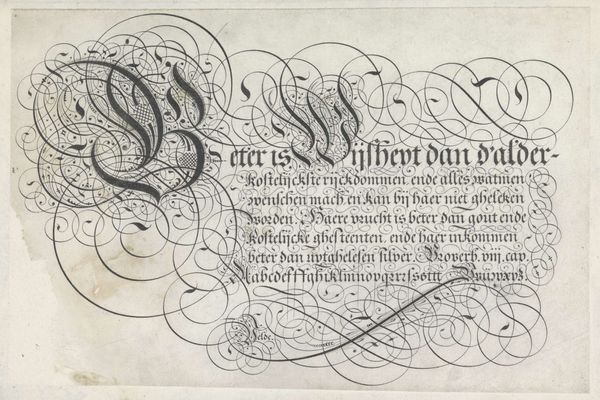 Beter is Wijsheyt dan d'alder-
kostelijckste rijckdommen, ende alles watmen
wenschen mach en kan bij haer niet gheleken
worden. Haere vrucht is beter dan gout ende
kostelijcke ghesteenten, ende haer inkommen
beter dan uytghelesen silver. Proverb. viij. cap.
Aabcdefffghiklmnopqrrssottt
Velde.